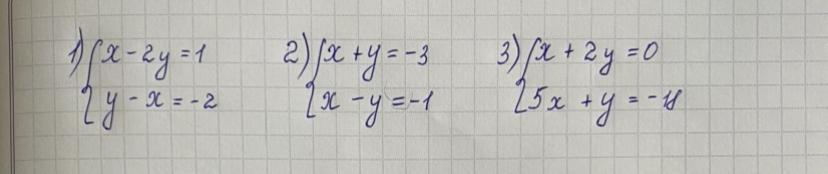 1) { x - 2y = 1
y - x = -2
2) { x + y = -3
x - y = -1
3) { x + 2y = 0
5x + y = -18